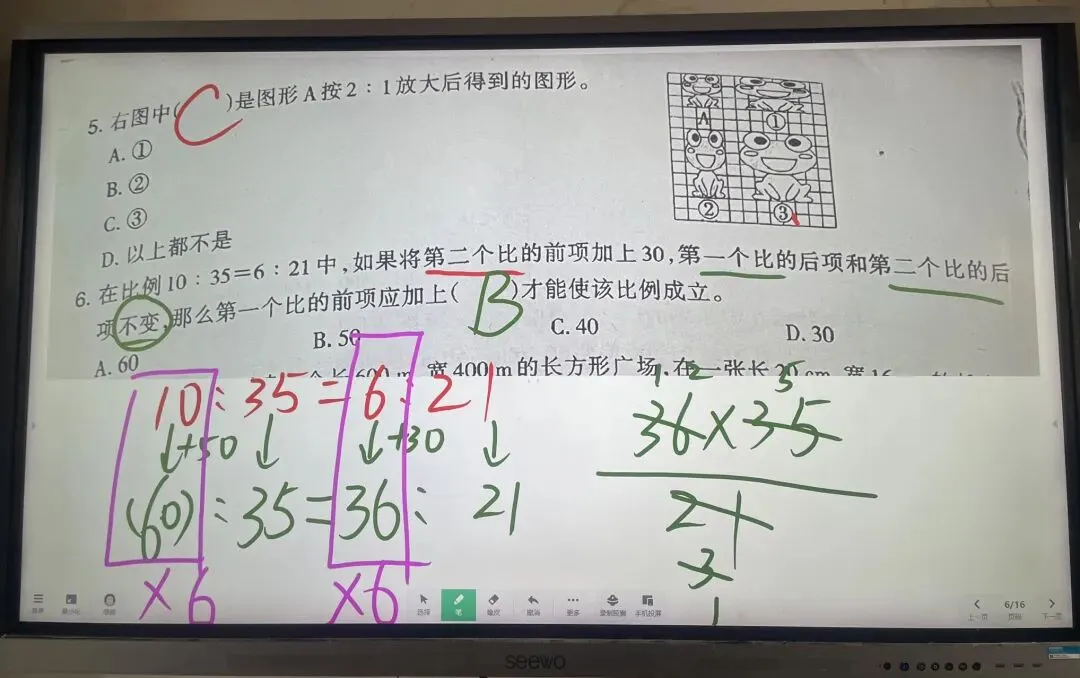 5. 右图中( C )是图形A按2∶1放大后得到的图形。
A. ①
B. ②
C. ③
D. 以上都不是
A ①
② ③
6. 在比例10∶35=6∶21中,如果将第二个比的前项加上30,第一个比的后项和第二个比的后
项不变,那么第一个比的前项应加上( B )才能使该比例成立。
A. 60 B. 50 C. 40 D. 30
600 m 宽400 m的长方形广场,在一张长20 cm 宽16
10:35=6:21
+50 +30
(60):35=36: 21
×6 ×6
1 2 5
36×35
21
3
1
选择 笔 橡皮 撤消 更多 手机投屏
6/16
上一页 页码 下一页
seewo